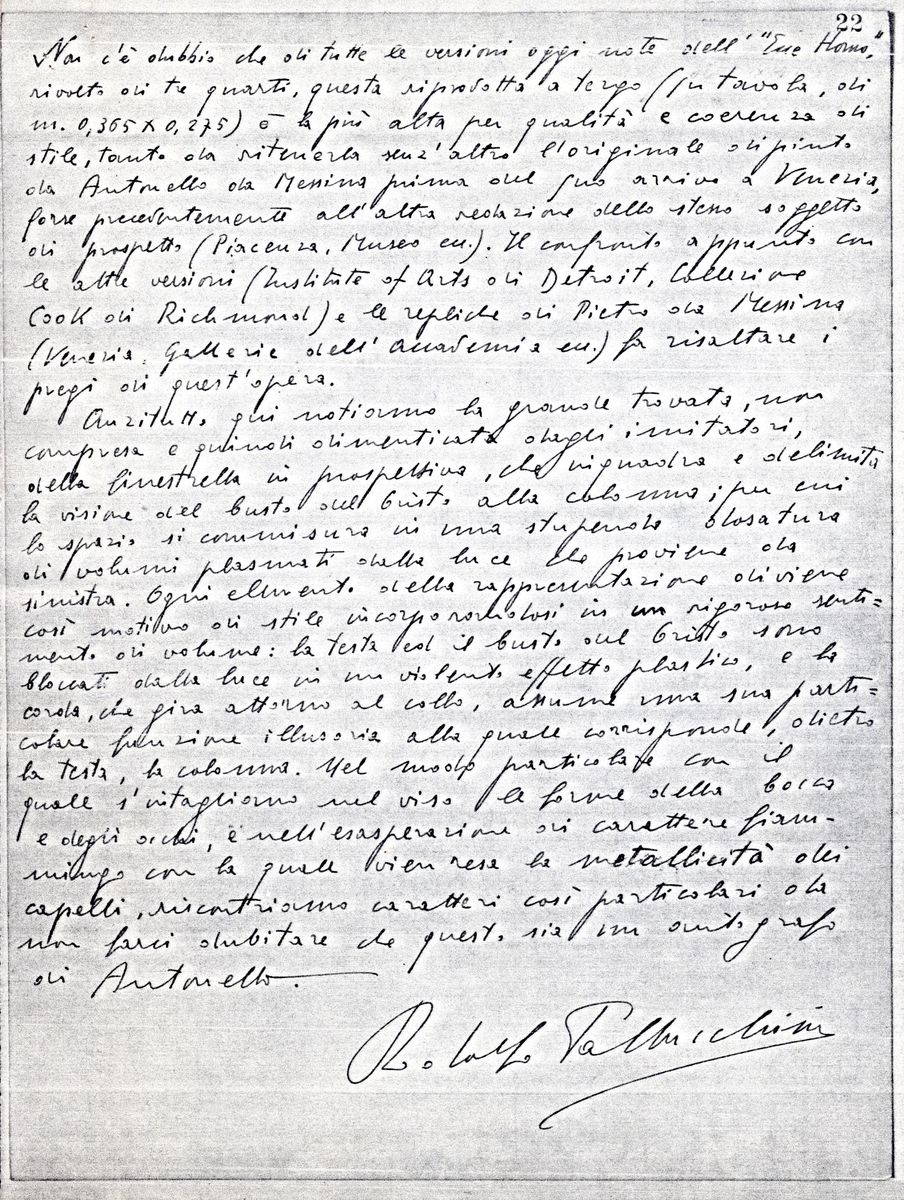 22
Non c'è dubbio che di tutte le versioni oggi note dell'"Ecce Homo,"
rivolto di tre quarti, questa riprodotta a tergo (su tavola, di
m. 0,365 x 0,275) è la più alta per qualità e coerenza di
stile, tanto da ritenerla senz'altro l'originale dipinto
da Antonello da Messina prima del suo arrivo a Venezia,
forse precedentemente all'altra redazione dello stesso soggetto
di prospetto (Piacenza, Museo cu.). Il confronto appunto con
le altre versioni (Institute of Arts di Detroit, Collezione
Cook di Richmond) e le repliche di Pietro da Messina
(Venezia, Gallerie dell'Accademia cu.) fa risaltare i
pregi di quest'opera.
Anzitutto qui notiamo la grande trovata, non
compresa e quindi dimenticata dagli imitatori,
della finestrella in prospettiva, che inquadra e delimita
la visione del busto del Cristo alla colonna; per cui
lo spazio si commisura in una stupenda dosatura
di volumi plasmati dalla luce che proviene da
sinistra. Ogni elemento della rappresentazione diviene
così motivo di stile incorporandosi in un rigoroso senti=
mento di volume: la testa ed il busto del Cristo sono
bloccati dalla luce in un violento effetto plastico, e la
corda, che gira attorno al collo, assume una sua parti=
colare funzione illusoria alla quale corrisponde, dietro
la testa, la colonna. Nel modo particolare con il
quale s'intagliano nel viso le forme della bocca
e degli occhi, e nell'esasperazione di carattere fiam-
mingo con la quale vien resa la metallicità dei
capelli, riscontriamo caratteri così particolari da
non farci dubitare che questo sia un autografo
di Antonello.
Rodolfo Pallucchini